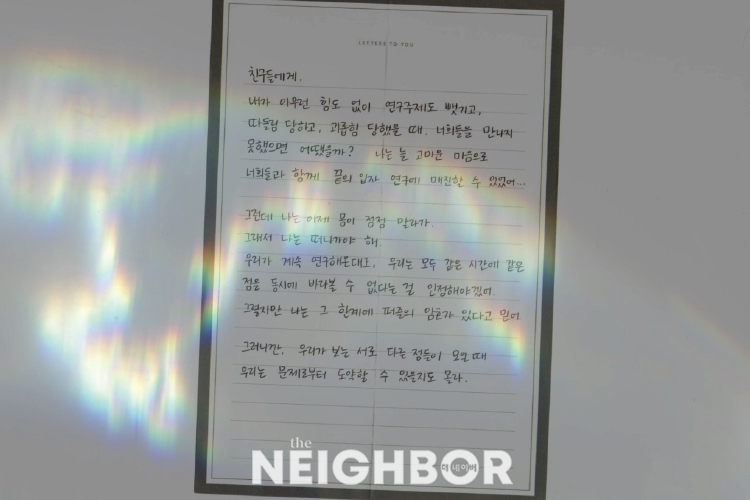 LETTERS TO YOU
친구들에게.
내가 아무런 힘도 없이 연구주제도 뺏기고,
따돌림 당하고, 괴롭힘 당했을 때, 너희들을 만나지
못했으면 어땠을까? 나는 늘 고마운 마음으로
너희들과 함께 끝의 입자 연구에 매진할 수 있었어...
그런데 나는 이제 몸이 점점 말라가.
그래서 나는 떠나가야 해.
우리가 계속 연구해온대로, 우리는 모두 같은 시간에 같은
점을 동시에 바라볼 수 없다는 걸 인정해야겠어.
그렇지만 나는 그 한계에 퍼즐의 암호가 있다고 믿어
그러니깐, 우리가 보는 서로 다른 점들이 모일 때
우리는 문제로부터 도약할 수 있을지도 몰라.
the
NEIGHBOR
더 네이버